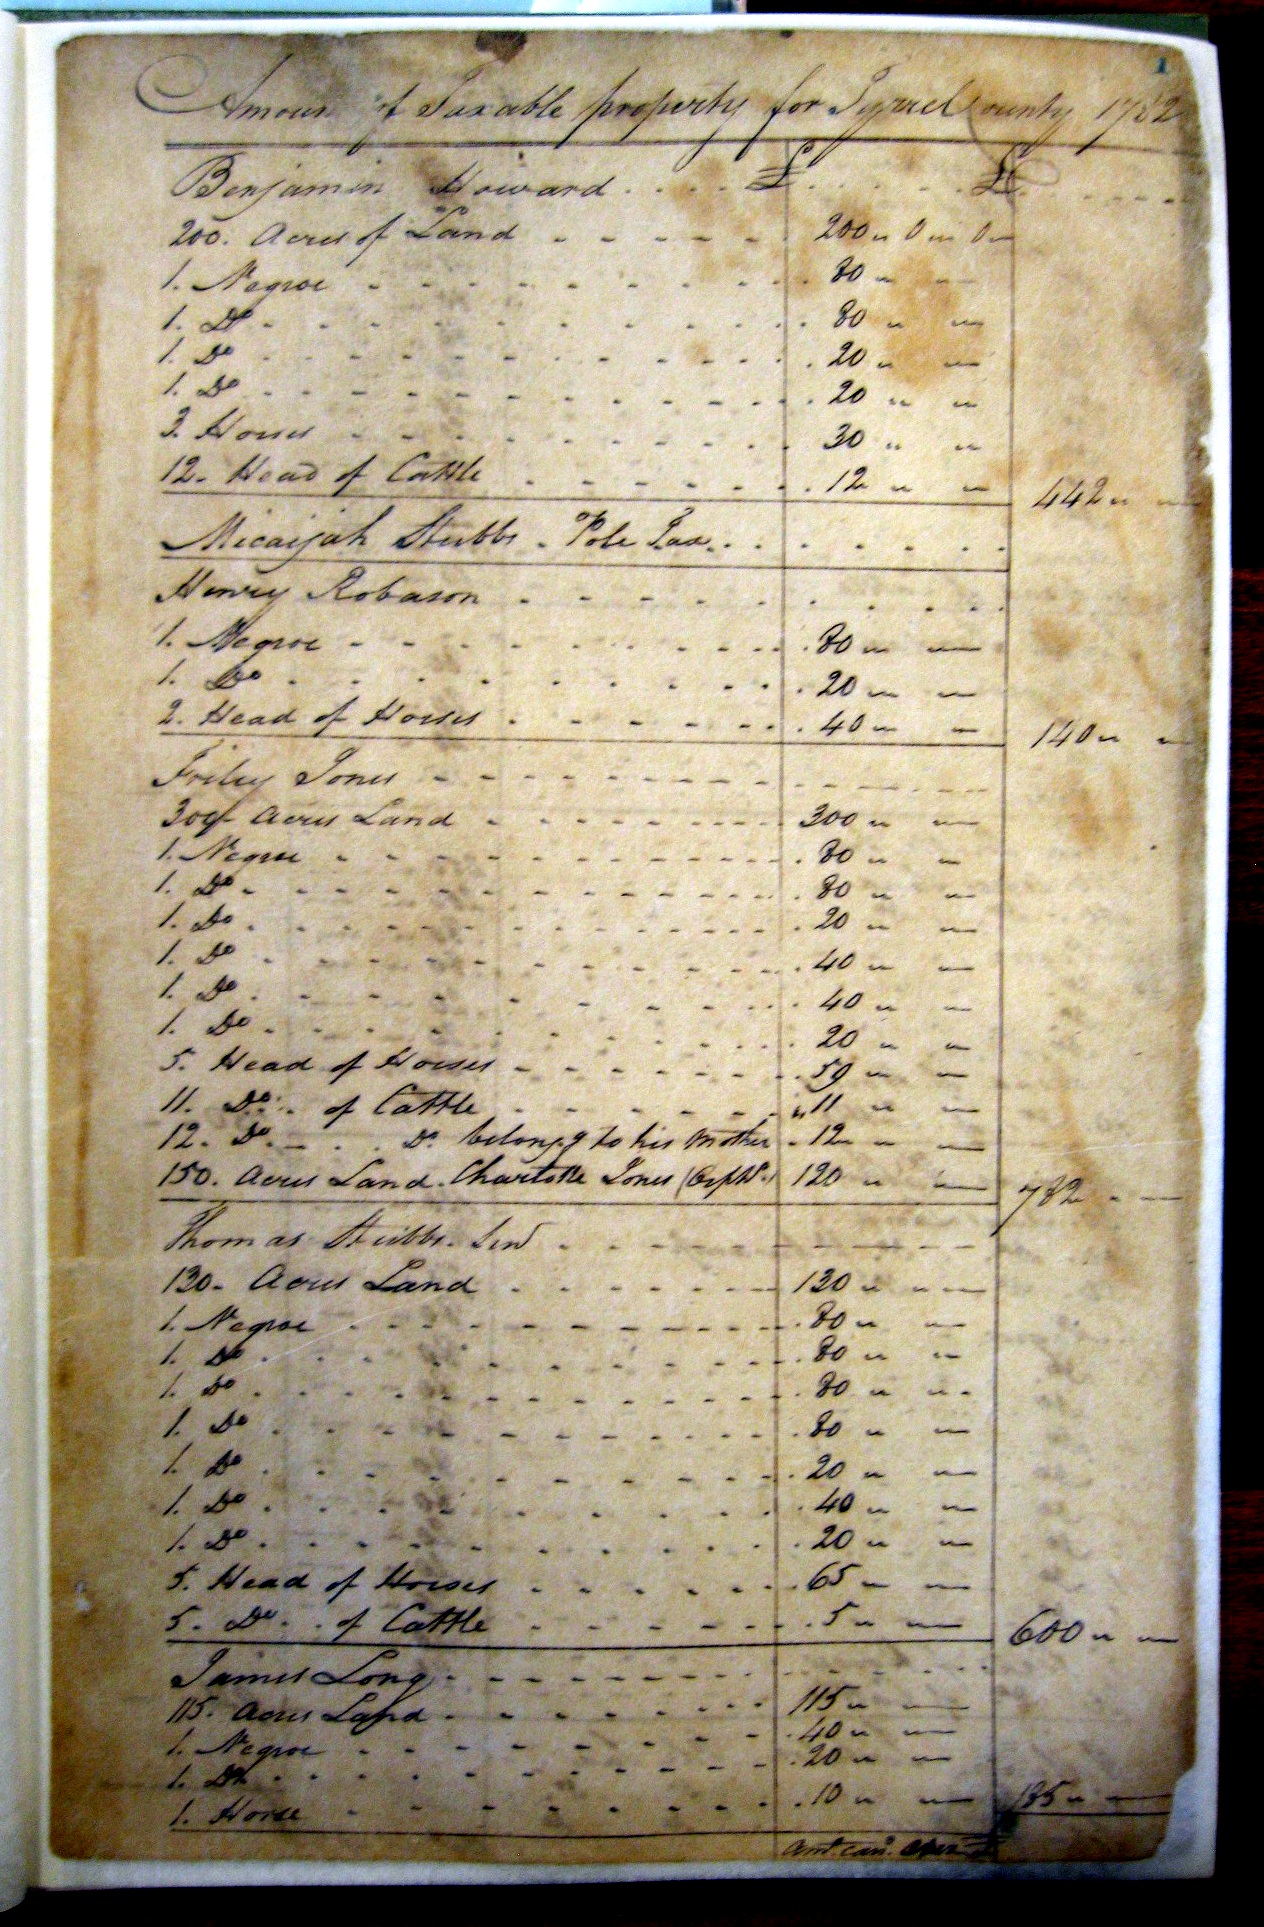 1
Amount of Taxable property for Tyrrel County 1782
Benjamin Howard £ £
200. Acres of Land 200 " 0 " 0
1. Negroe 80 "
1. Do 80 " "
1. Do 20 " "
1. Do 20 " "
3. Horses 30 " "
12. Head of Cattle 12 " " 442 "
Micaijah Stubbs. Pole Tax
Henry Robason
1. Negroe 80 " "
1. Do 20 " "
2. Head of Horses 40 " " 140 " "
Friley Jones
300 Acres Land 300 " "
1. Negroe 80 " "
1. Do 80 " "
1. Do 20 " "
1. Do 40 " "
1. Do 40 " "
1. Do 20 " "
5. Head of Horses 59 " "
11. Do. of Cattle 11 " "
12. Do. Do. belong.g to his Mother 12 " "
150. Acres Land. Charlotte Jones (Orphn.) 120 " " 782
Thomas Stubbs. Senr
130. Acres Land 130 " "
1. Negroe 80 " "
1. Do 80 " "
1. Do 80 " "
1. Do 80 " "
1. Do 20 " "
1. Do 40 " "
1. Do 20 " "
5. Head of Horses 65 " "
5. Do. of Cattle 5 " " 600 " "
James Long
115. Acres Land 115 " "
1. Negroe 40 " "
1. Do 20 " "
1. Horse 10 " " 185 "
Amt. card. Over £